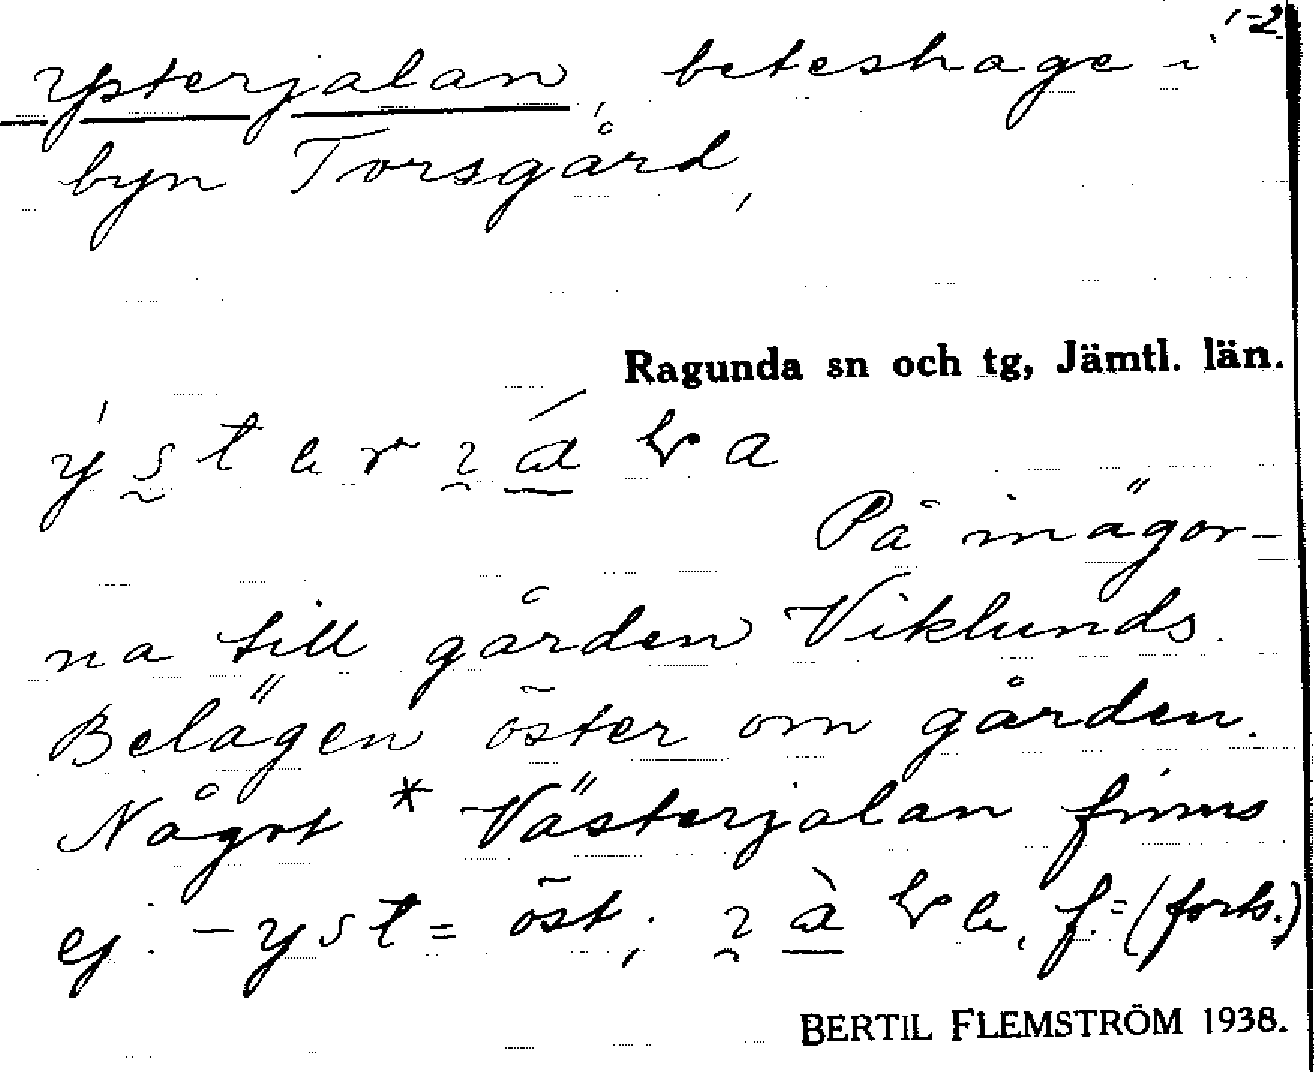 1-2
Ysterjalan, beteshage i
byn Torsgård,
Ragunda sn och tg, Jämtl. län.
På inägor-
na till gården Viklunds.
Belägen öster om gården.
Något * Västerjalan finns
ej. - yst = öst; f. = (forts.)
BERTIL FLEMSTRÖM 1938.